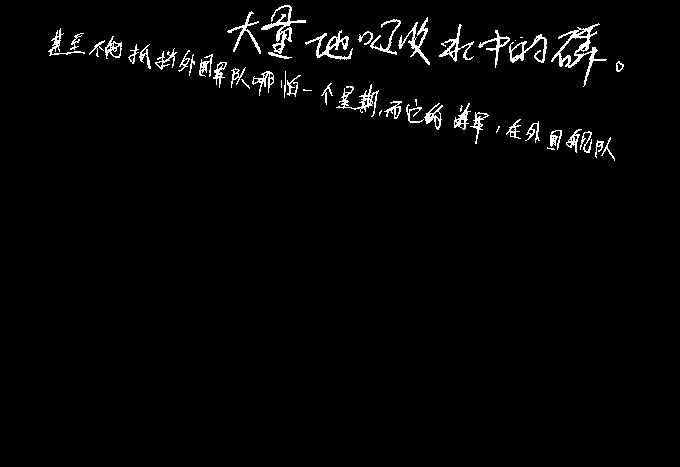 大量地吸收水中的磷。
甚至不能抵挡外国军队哪怕一个星期,而它的海军,在外国舰队